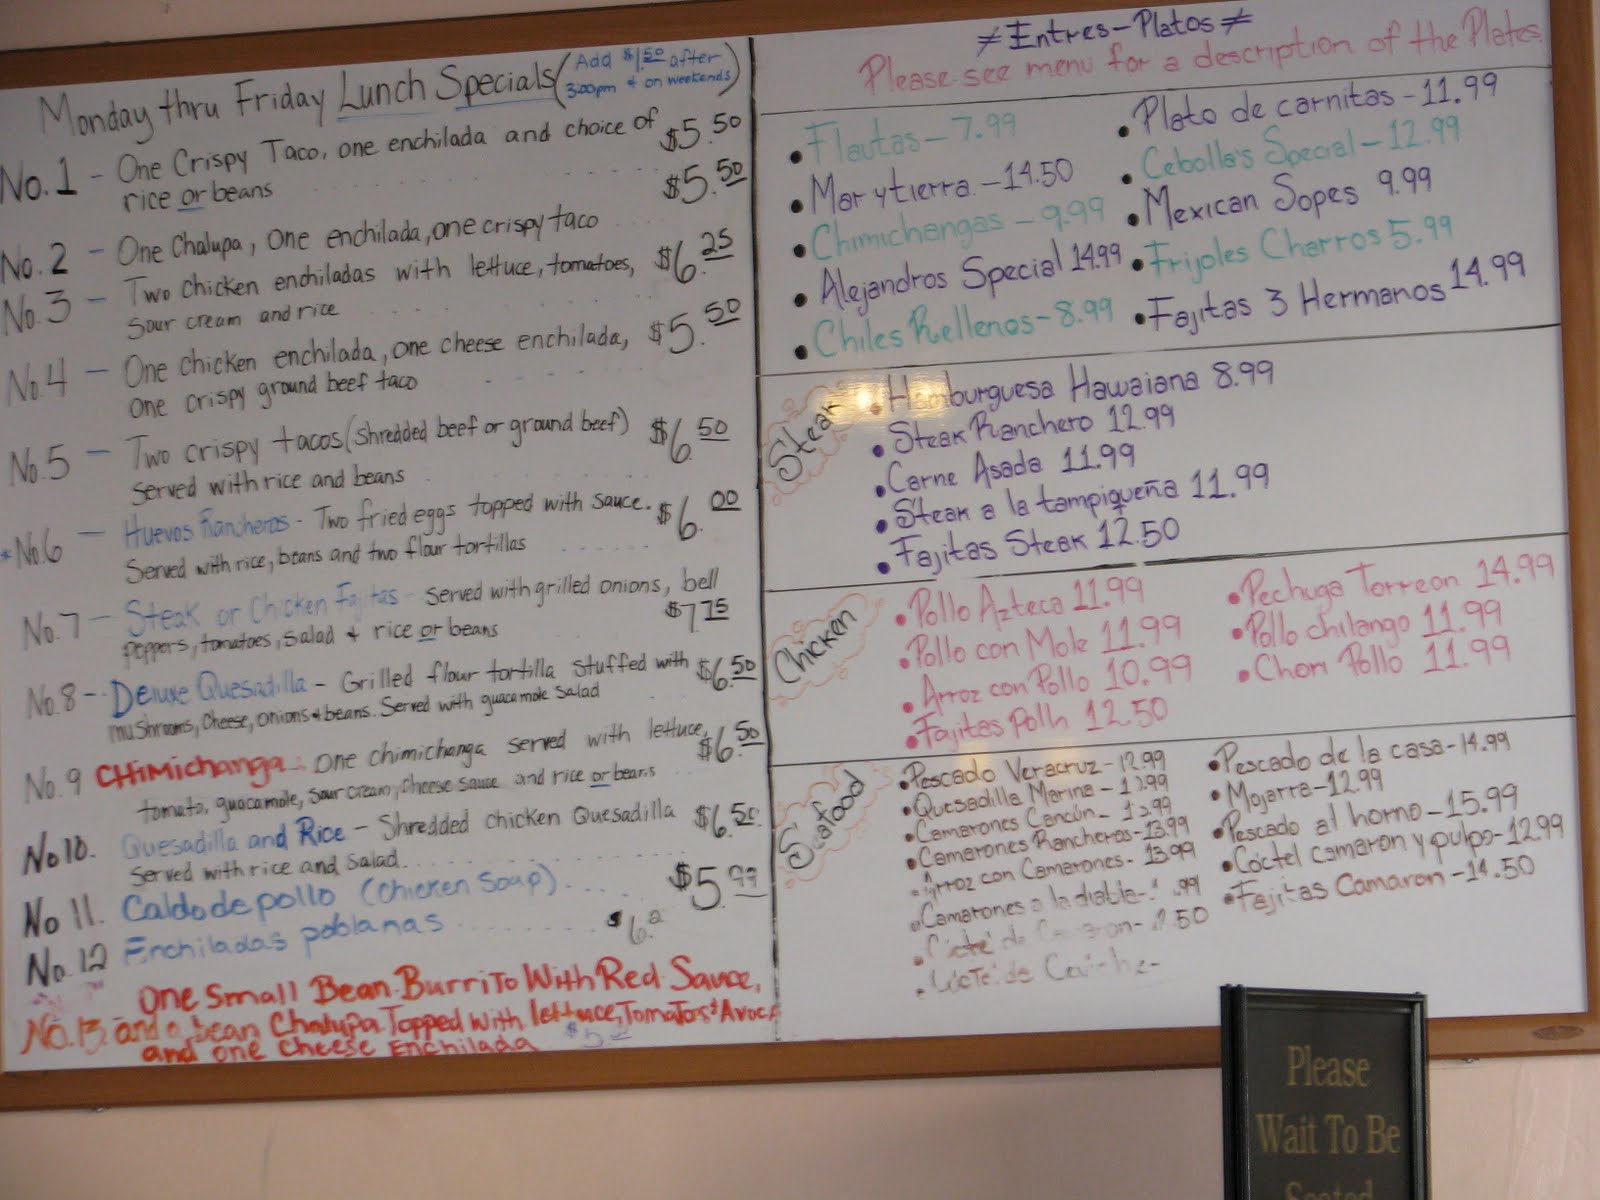 Monday thru Friday Lunch Specials (Add $1.50 after
3:00pm & on weekends)
No.1 - One Crispy Taco, one enchilada and choice of $5.50
rice or beans
No.2 - One Chalupa, One enchilada, one crispy taco $5.50
No.3 - Two chicken enchiladas with lettuce, tomatoes, $6.25
Sour cream and rice
No.4 - One chicken enchilada, one cheese enchilada, $5.50
one crispy ground beef taco
No.5 - Two crispy tacos (shredded beef or ground beef) $6.50
Served with rice and beans
*No.6 - Huevos Rancheros - Two fried eggs topped with sauce. $6.00
Served with rice, beans and two flour tortillas
No.7 - Steak or Chicken Fajitas - Served with grilled onions, bell
peppers, tomatoes, salad & rice or beans $7.75
No.8 - Deluxe Quesadilla - Grilled flour tortilla stuffed with $6.50
mushrooms, cheese, onions & beans. Served with guacamole salad
No.9 CHimichanga: One chimichanga served with lettuce, $6.50
tomato, guacamole, sour cream, cheese sauce and rice or beans
No10. Quesadilla and Rice - Shredded chicken Quesadilla $6.50
Served with rice and salad
No 11. Caldo de pollo (Chicken Soup) $5.99
No.12 Enchiladas poblanas
One Small Bean Burrito With Red Sauce,
No.13. and a bean Chalupa Topped with lettuce, Tomatoes &
and one cheese Enchilada
≠Entres-Platos≠
Please see menu for a description of the Plates
•Flautas-7.99
•Mar y tierra.-14.50
•Chimichangas-9.99
•Alejandros Special 14.99
•Chiles Rellenos-8.99
•Plato de carnitas-11.99
•Cebolla's Special-12.99
•Mexican Sopes 9.99
•Frijoles Charros 5.99
•Fajitas 3 Hermanos 14.99
Steak
•Hamburguesa Hawaiana 8.99
•Steak Ranchero 12.99
•Carne Asada 11.99
•Steak a la tampiqueña 11.99
•Fajitas Steak 12.50
Chicken
•Pollo Azteca 11.99
•Pollo con Mole 11.99
•Arroz con Pollo 10.99
•Fajitas 12.50
•Pechuga Torreon 14.99
•Pollo chilango 11.99
•Chori Pollo 11.99
Seafood
•Pescado Veracruz-12.99
•Quesadilla Marina-
•Camarones Cancún-
•Camarones Rancheros-13.99
•Arroz con Camarones-13.99
•Camarones a la diabla-
•Pescado de la casa-14.99
•Mojarra-12.99
•Pescado al horno-15.99
•Coctel camaron y pulpo-12.99
•Fajitas Camaron-14.50
Please
Wait To Be
Seated